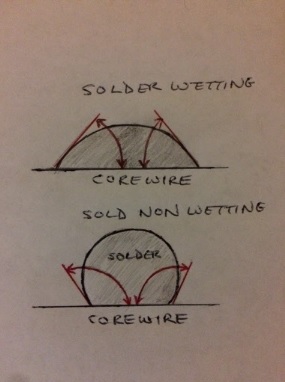 SOLDER WETTING
COREWIRE
SOLD NON WETTING
SOLDER
COREWIRE